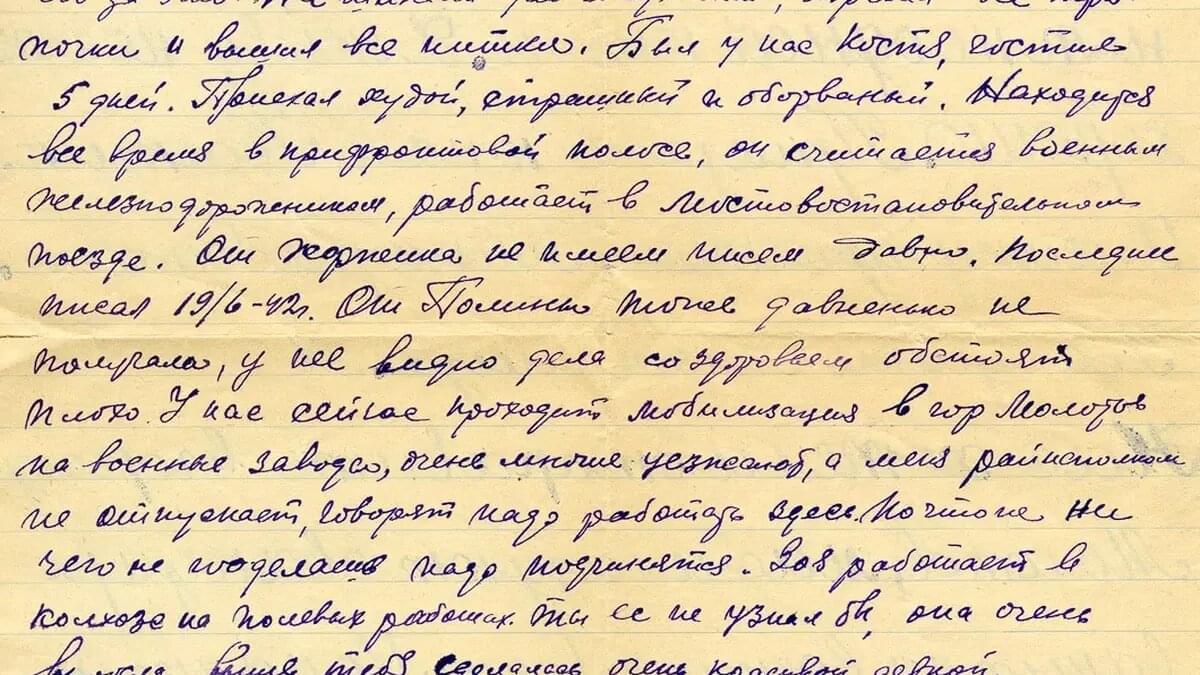 почки и вышил все нитки. Был у нас Костя, гостил
5 дней. Приехал худой, страшный и оборваный. Находится
все время в прифронтовой полосе, он считается военным
железнодорожником, работает в мостовостановительном
поезде. От Жорженка не имеем писем давно. Последние
писал 19/6-42г. От Полиньки тоже давненько не
получало, у нее видно дела со здоровьем обстоят
плохо. У нас сейчас проходит мобилизация в гор Молотов
на военные заводы, очень многие уезжают, а меня райисполком
не отпускает, говорят надо работать здесь. Но что же ни
чего не поделаешь надо подчинятся. Зоя работает в
колхозе на полевых работах. Ты ее не узнал бы, она очень
выросла выше тебя сделалась очень красивой девкой